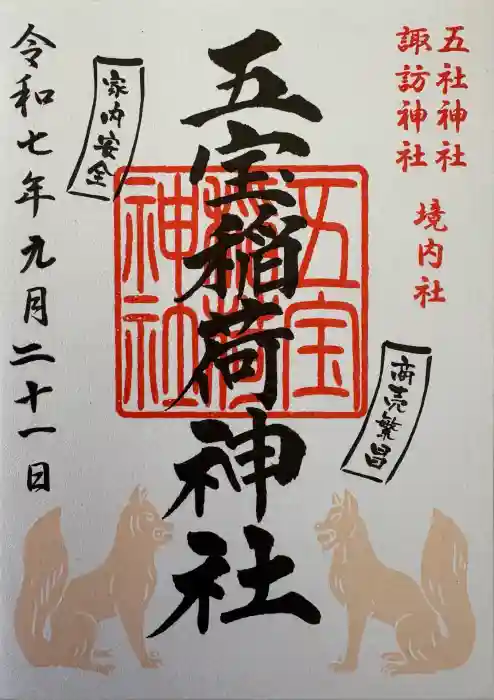 五社神社
諏訪神社 境内社
五宝稲荷神社
五宝
稲荷
神社
家内安全
商売繁昌
令和七年九月二十一日